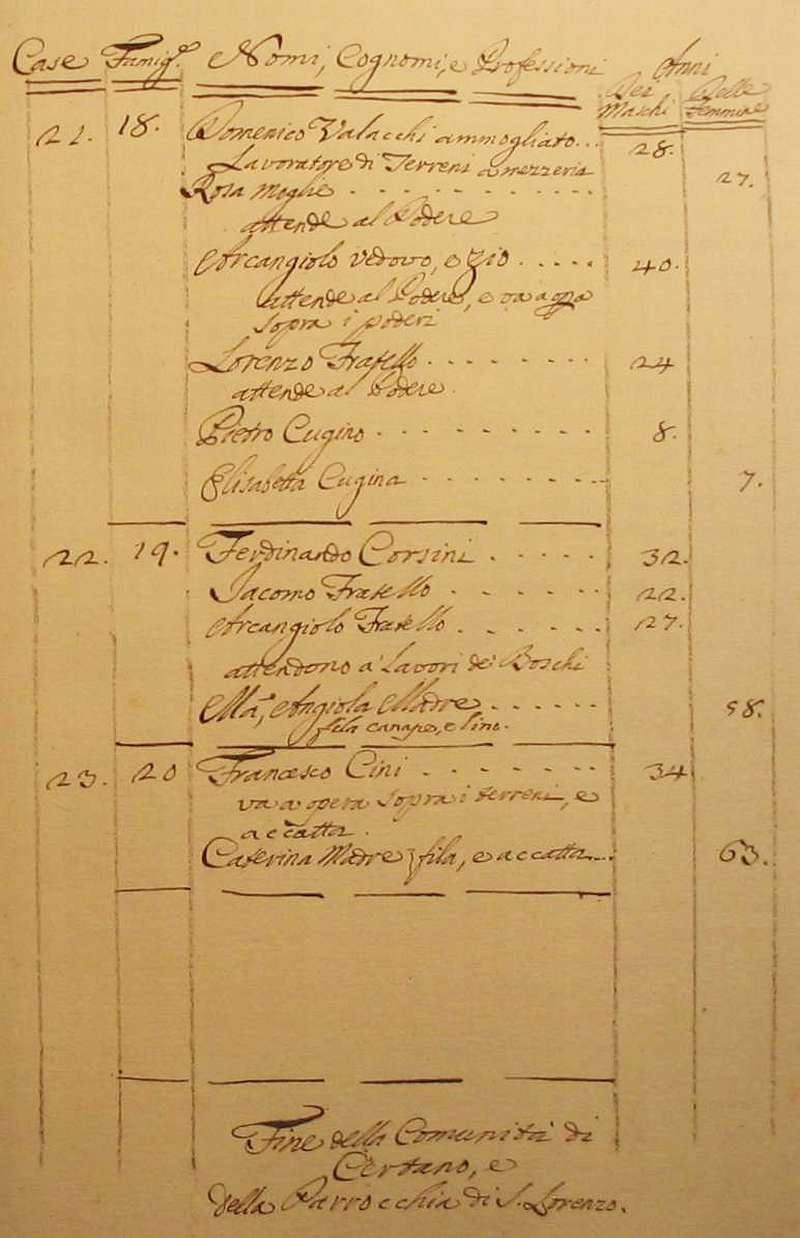 Case Famig.e Nomi, Cognomi, e Professioni Anni
Dei Maschi Delle Femmine
21. 18. Domenico Valacchi ammogliato... 28.
Lavoratore di Terreni a mezzeria
Rosa Moglie 27.
attende al Podere
Arcangiolo vedovo, e zio 40.
attende al Podere, e va a opra
sopra i poderi
Lorenzo Fratello 24
attende al Podere.
Pietro Cugino 8.
Elisabetta Cugina 7.
22. 19. Ferdinando Corsini 32.
Jacomo Fratello 22.
Arcangiolo Fratello 27.
attendono a' Lavori de' Boschi
Ma, Angiola Madre 58.
fila canapa, e lino.
23. 20 Francesco Cini 34
va a opera sopra i terreni, e
accatta.
Caterina Madre, fila, e accatta 63.
Fine della Comunità di
Certano, e
della Parrocchia di S. Lorenzo.